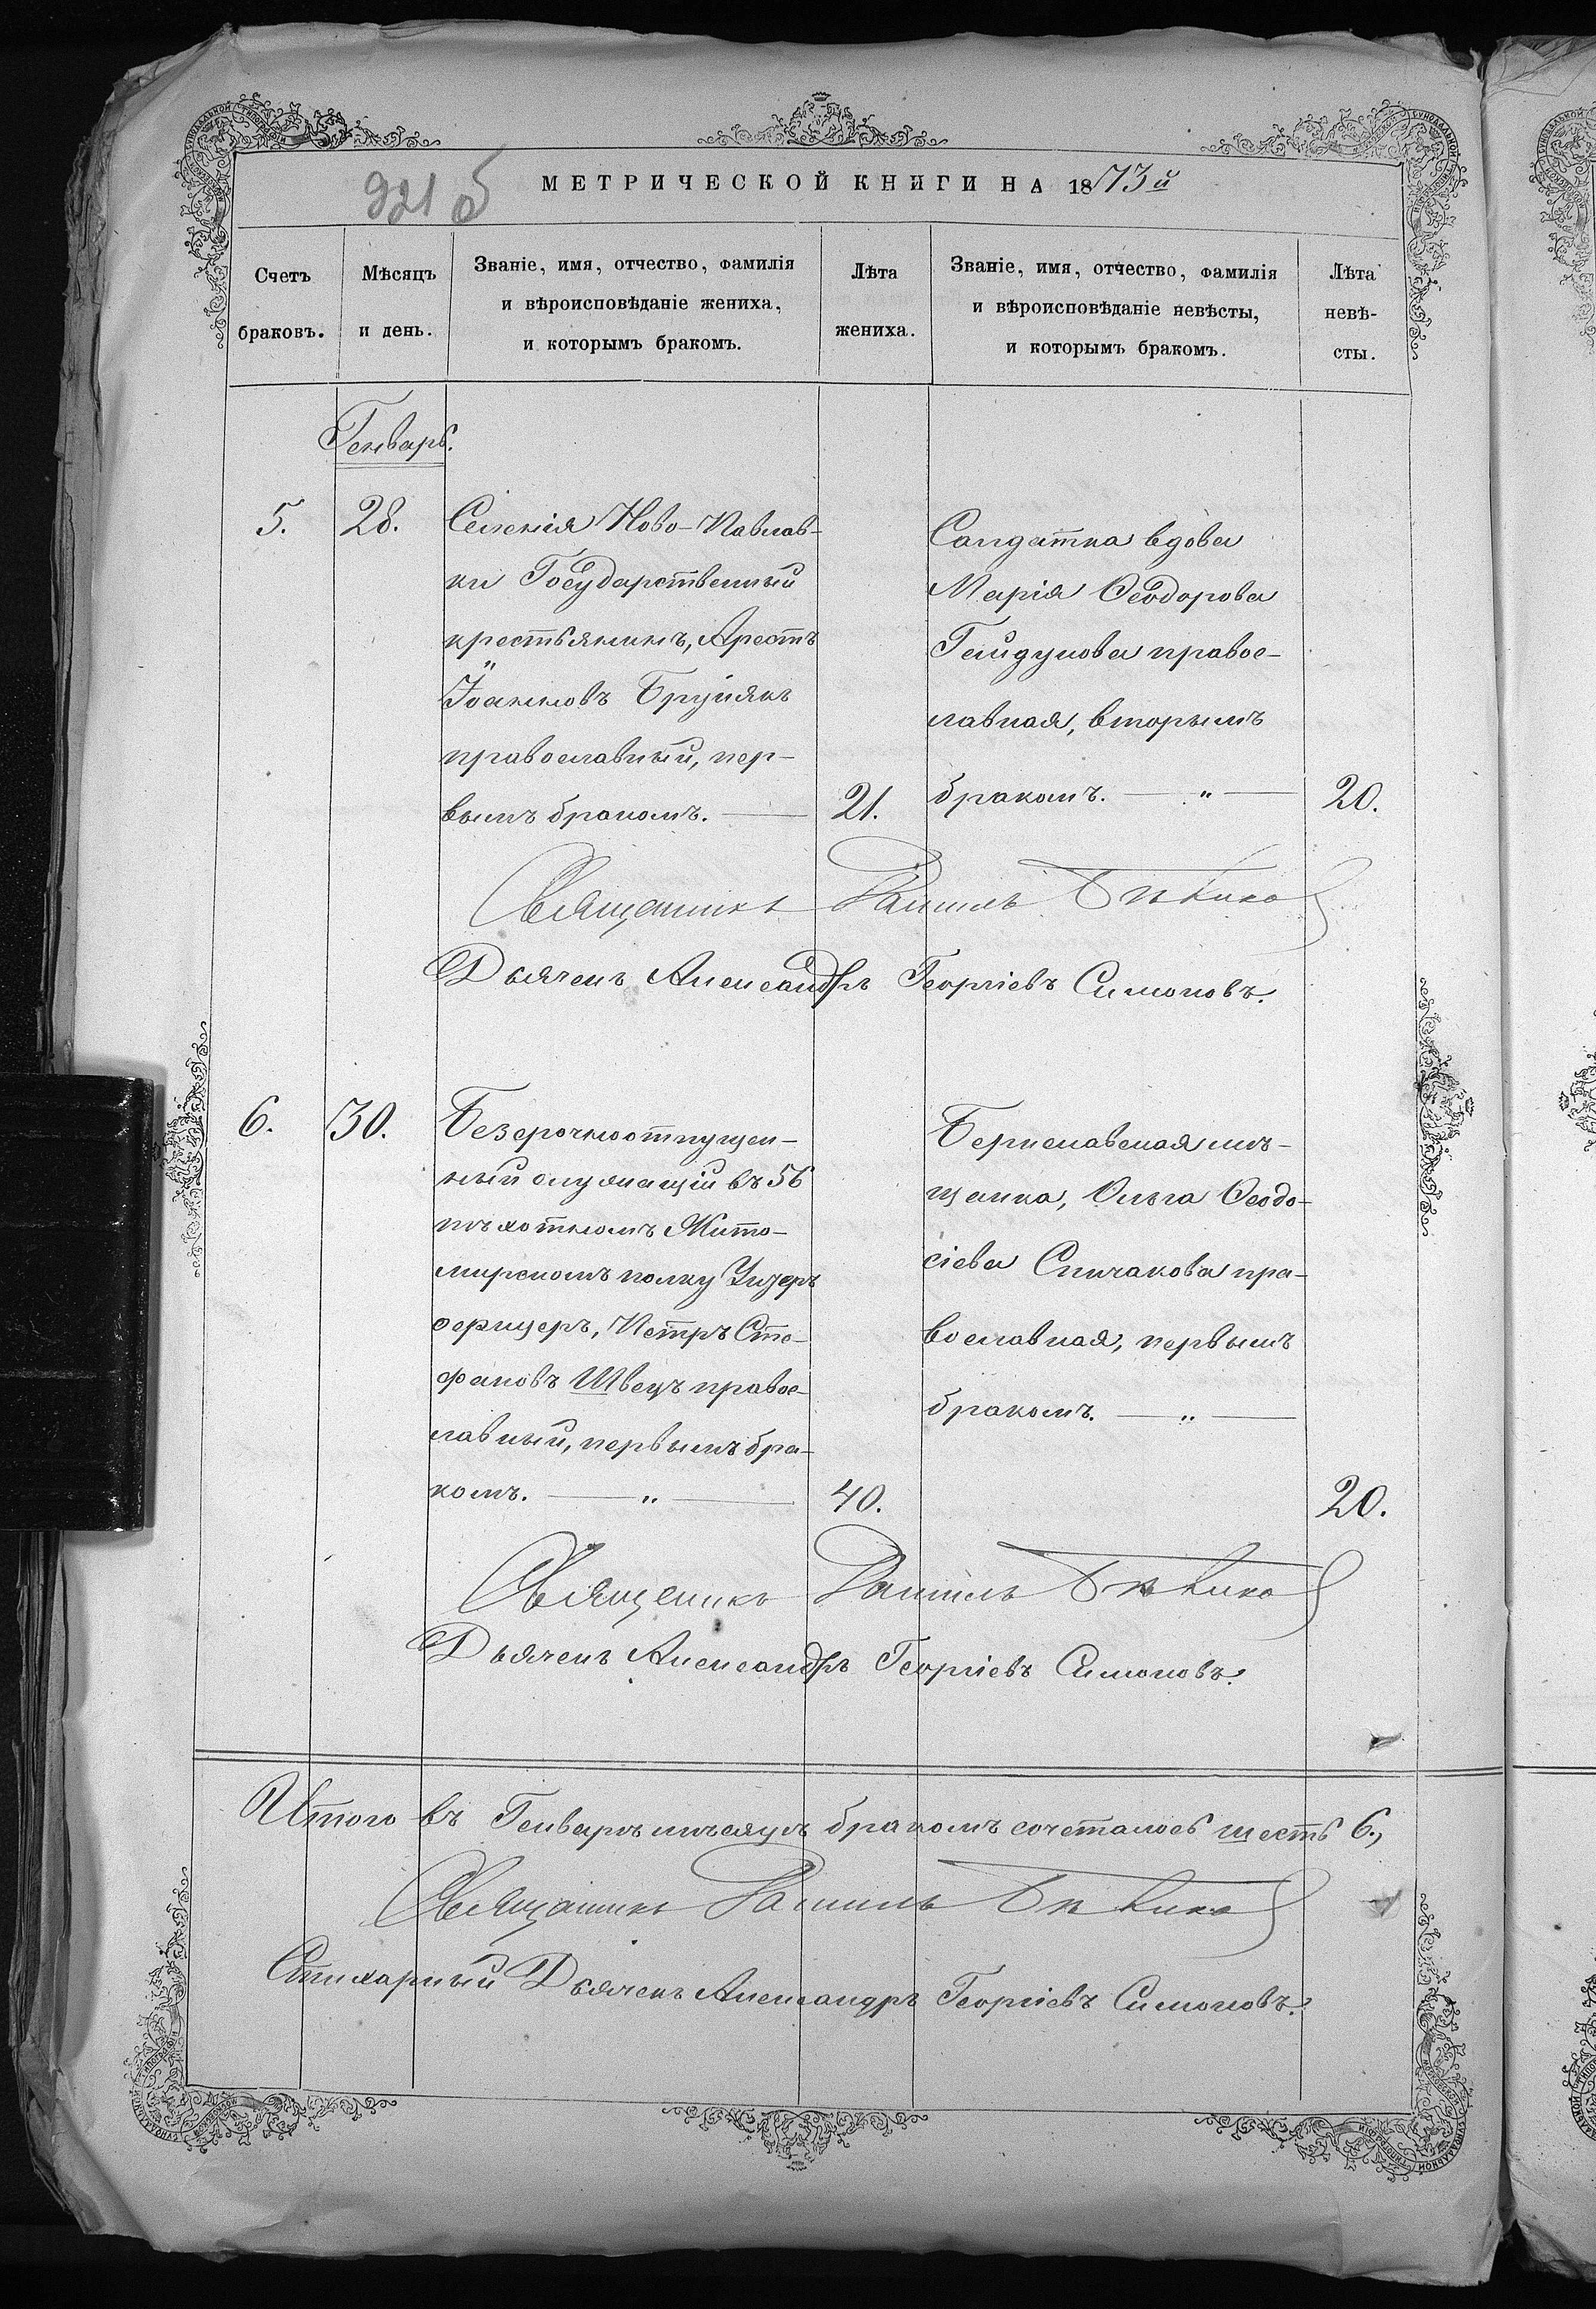 921 об
МЕТРИЧЕСКОЙ КНИГИ НА 1873й
Счетъ браковъ.
Мѣсяцъ и день.
Званіе, имя, отчество, фамилія
и вѣроисповѣданіе жениха,
и которымъ бракомъ.
Лѣта жениха.
Званіе, имя, отчество, фамилія
и вѣроисповѣданіе невѣсты,
и которымъ бракомъ.
Лѣта невѣ-
сты.
Генварь.
5.
28.
Селенія Ново-Павлов-
ки Государственный
крестьянинъ, Арестъ
Іоанновъ
православный, пер-
вымъ бракомъ. —
21.
Солдатка вдова
Марія Ѳеодорова
Гайдукова правос-
лавная, вторымъ
бракомъ. — „ —
20.
Священникъ Даніилъ
Дьячекъ Александръ Георгіевъ Симоновъ.
6.
30.
Безсрочноотпущен-
ный служащій въ 56
пѣхотномъ Жито-
мирскомъ полку Унтеръ
офицеръ, Петръ Сте-
фановъ Швецъ правос-
лавный, первымъ бра-
комъ. — „ —
40.
Бериславская мѣ-
щанка, Ольга Ѳеодо-
сіева Спичакова пра-
вославная, первымъ
бракомъ. — „ —
20.
Священникъ Даніилъ
Дьячекъ Александръ Георгіевъ Симоновъ.
Итого въ Генварѣ мѣсяцѣ бракомъ сочеталось шесть 6.,
Священникъ Даніилъ
Стихарный Дьячекъ Александръ Георгіевъ Симоновъ.